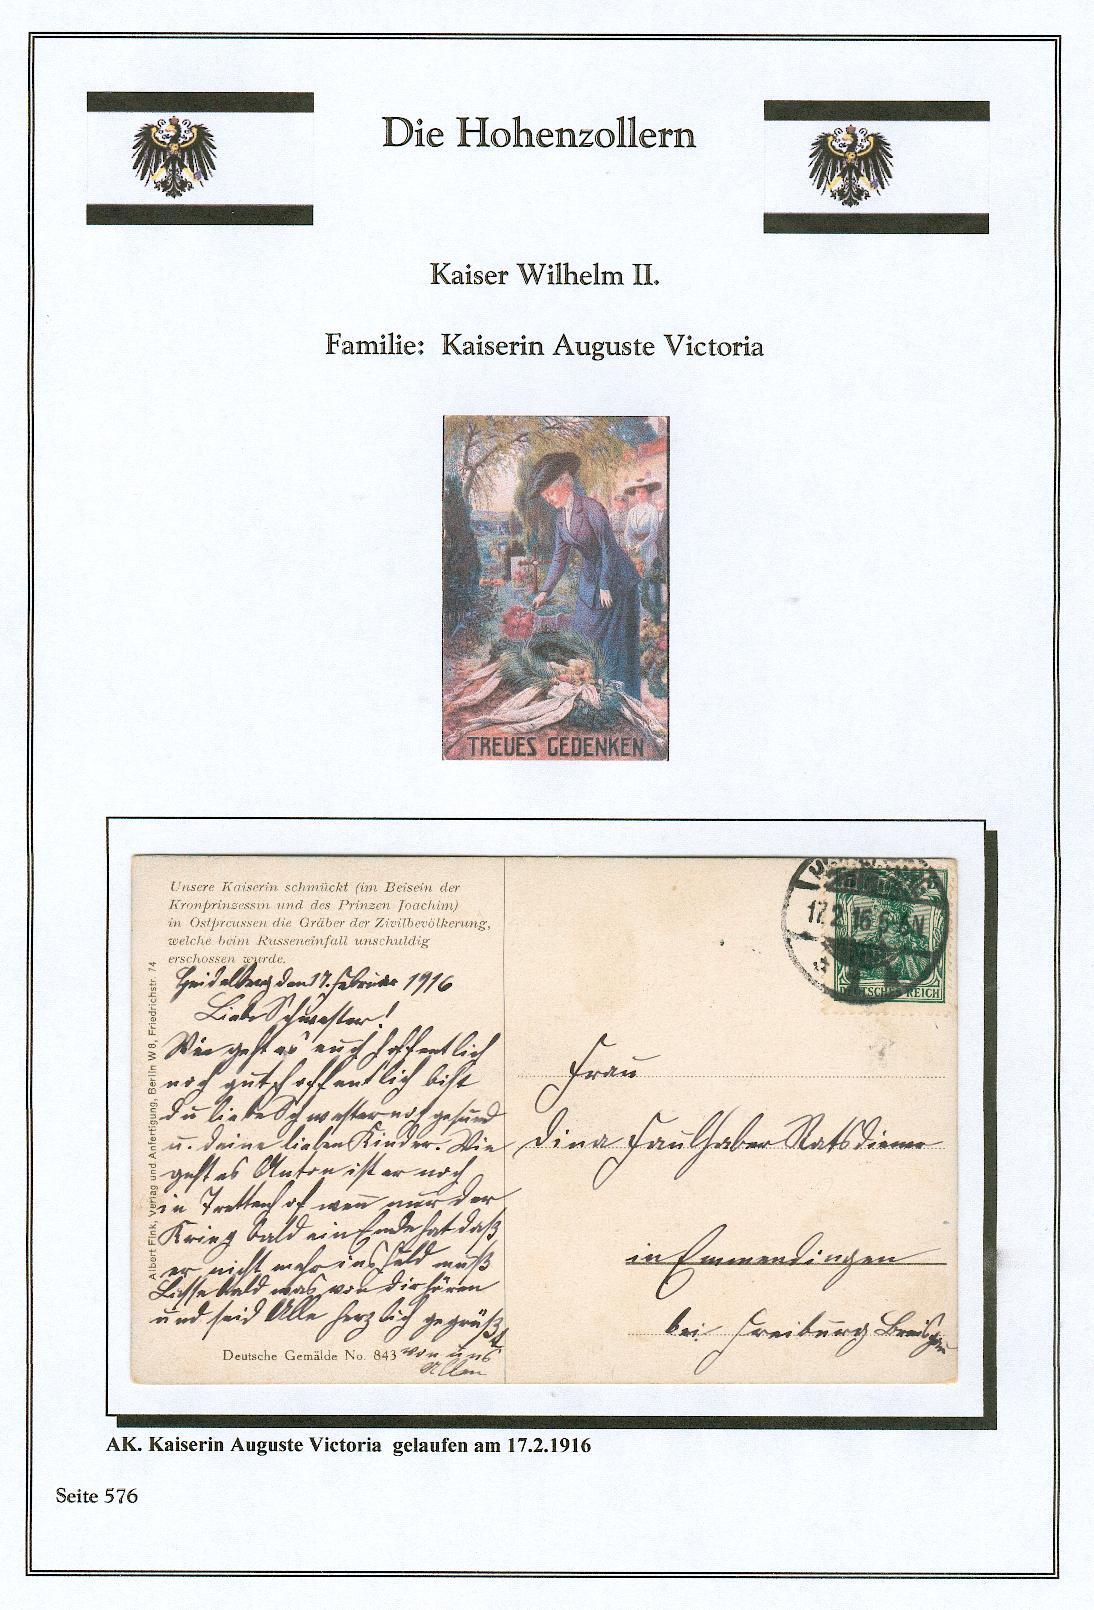 Die Hohenzollern
Kaiser Wilhelm II.
Familie: Kaiserin Auguste Victoria
TREUES GEDENKEN
Unsere Kaiserin schmückt (im Beisein der
Kronprinzessin und des Prinzen Joachim)
in Ostpreussen die Gräber der Zivilbevölkerung,
welche beim Russeneinfall unschuldig
erschossen wurde.
Albert Fink, Verlag und Anfertigung, Berlin W 8, Friedrichstr. 74
Heidelberg den 17. Februar 1916
Liebe Schwester!
Wie geht es euch hoffentlich
noch gut hoffentlich bist
du liebe Schwester noch gesund
u. deine lieben Kinder. Wie
geht es Anton ist er noch
in wen nur der
Krieg bald ein Ende hat daß
er nicht mehr ins Feld muß
Lasse bald was von dir hören
und seid Alle herzlich gegrüßt
von uns
Allen
Deutsche Gemälde No. 843
17.2.16.5-6N
DEUTSCHES REICH
Frau
Dina Faulhaber Ratsdiener
in Emmendingen
bei Freiburg Breisgau
AK. Kaiserin Auguste Victoria gelaufen am 17.2.1916
Seite 576